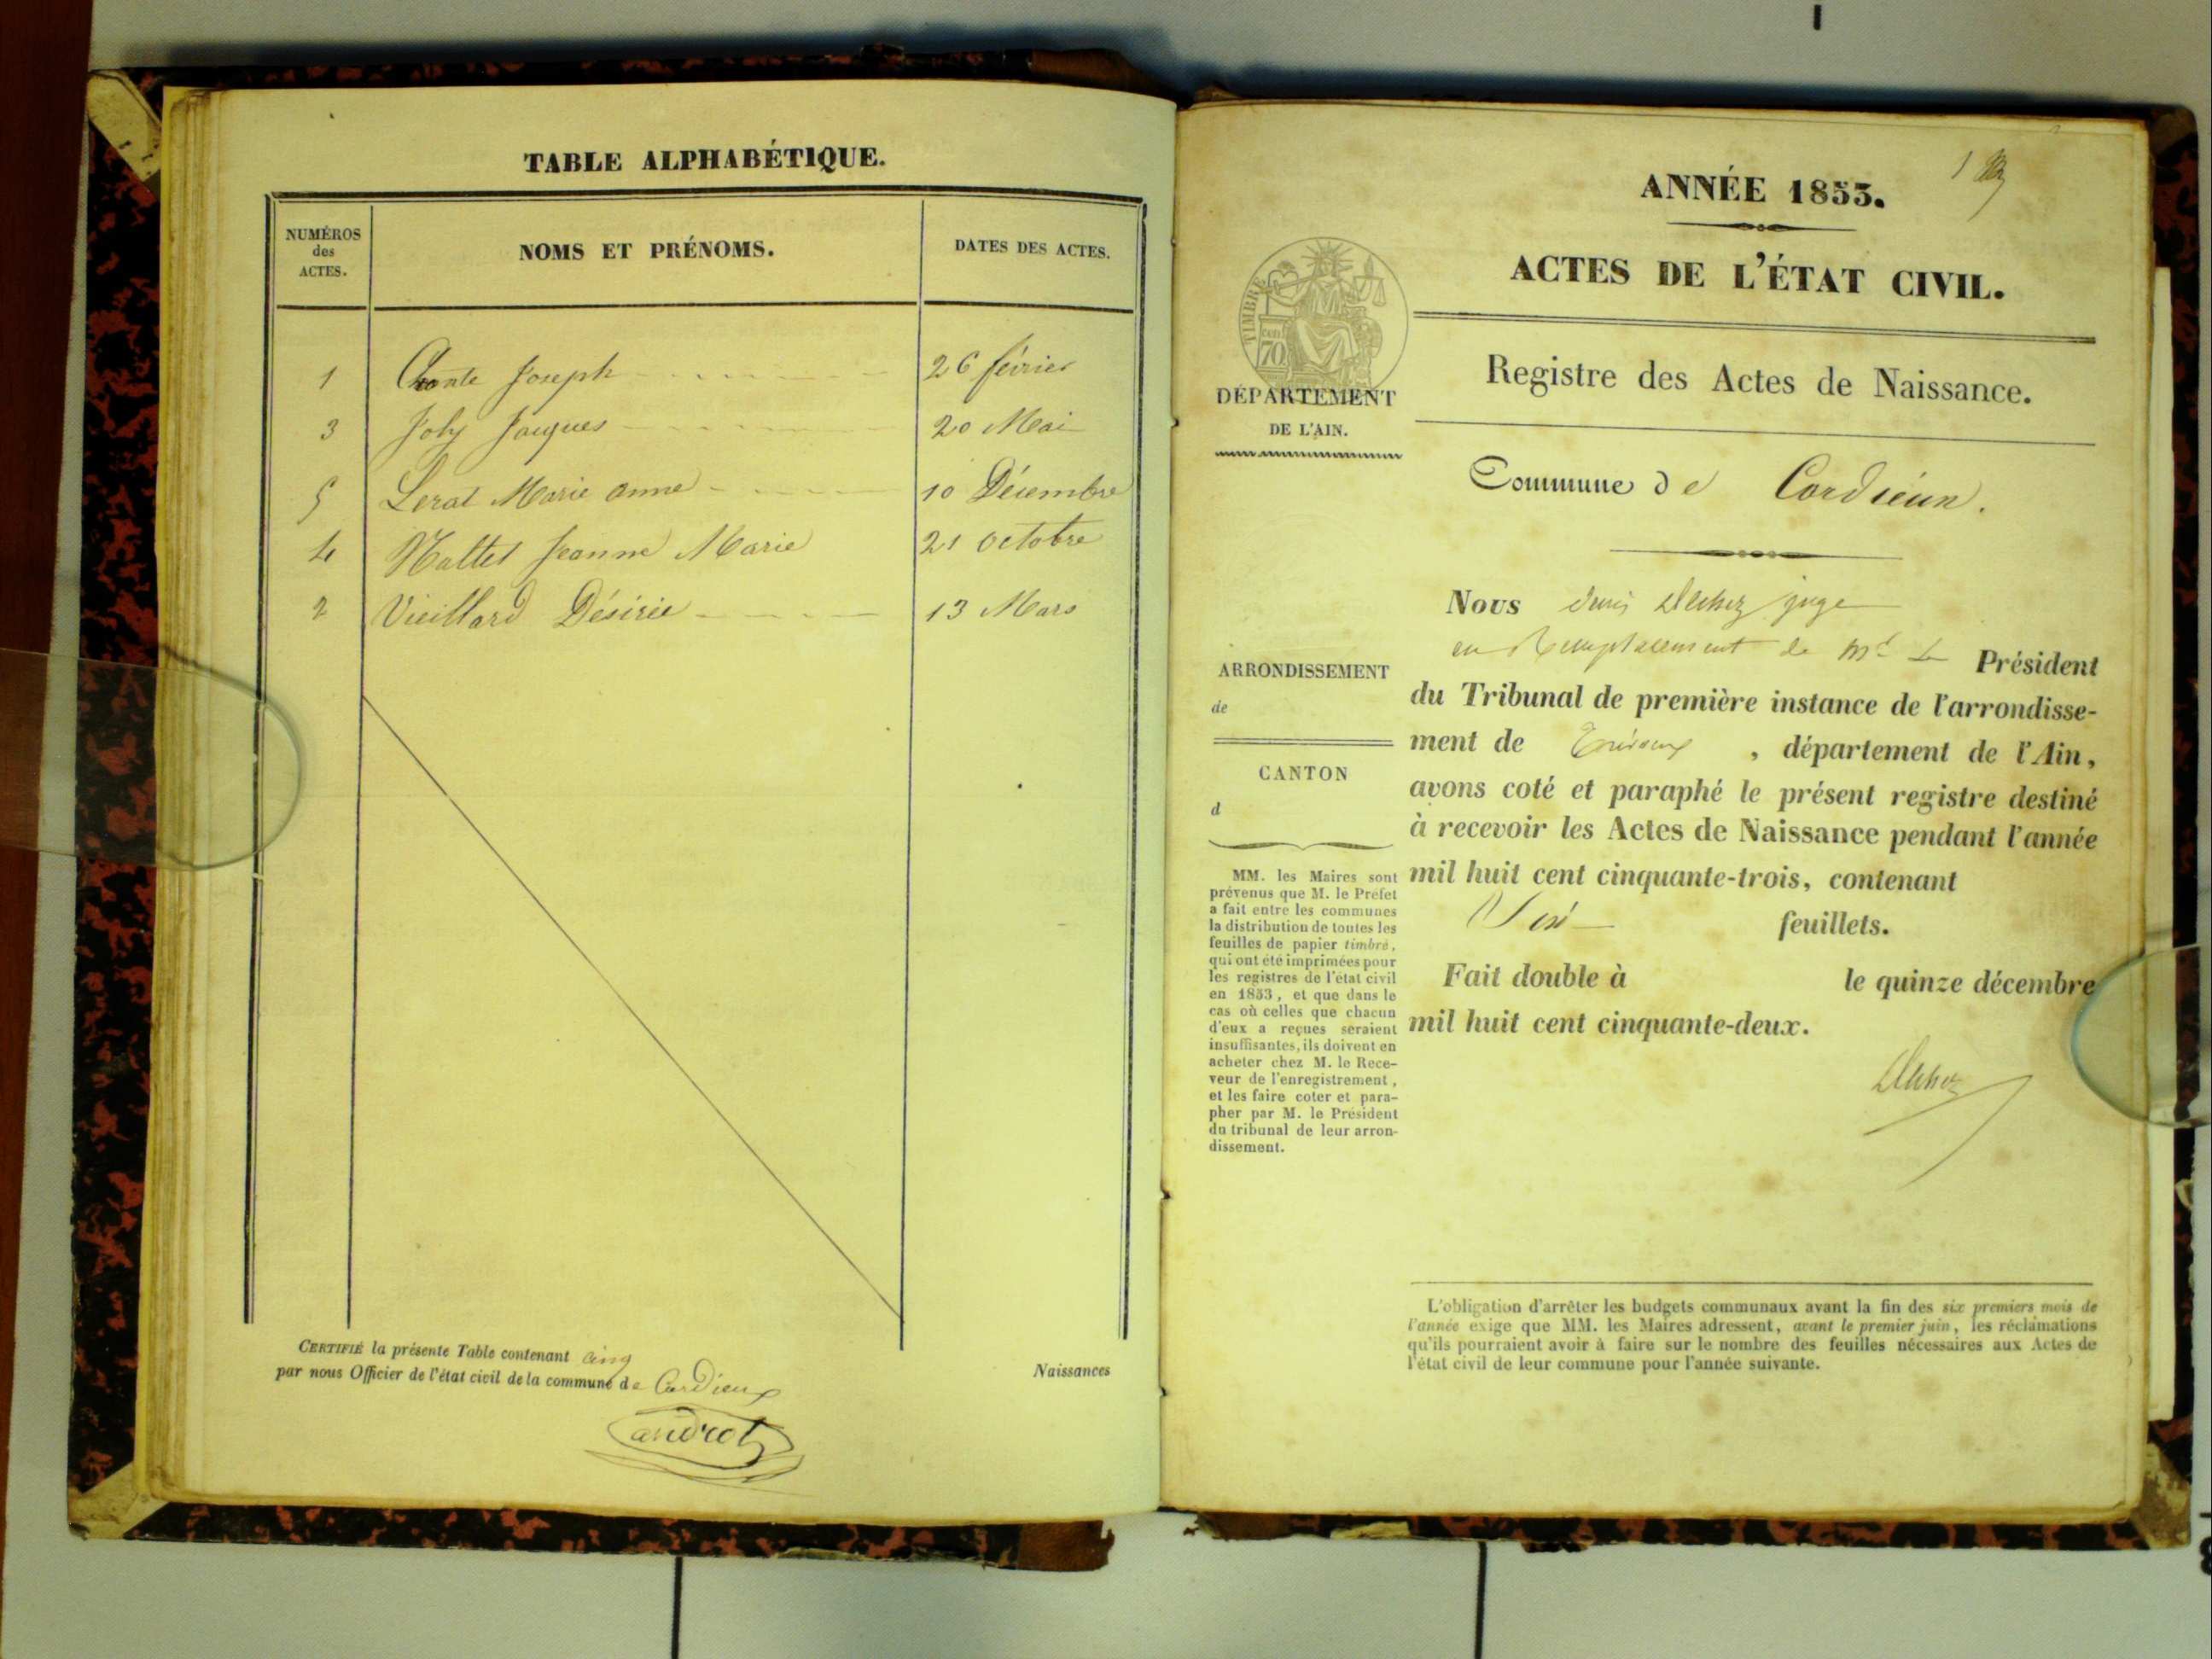 TABLE ALPHABÉTIQUE.
NUMÉROS
des
ACTES.
NOMS ET PRÉNOMS.
DATES DES ACTES.
1 Joseph 26 février
3 Joly Jacques 20 Mai
5 Lerat Marie Anne 10 Décembre
4 Jeanne Marie 21 Octobre
2 Vieillard Désirée 13 Mars
CERTIFIÉ la présente Table contenant cinq Naissances
par nous Officier de l'état civil de la commune de Cordieux
1
ANNÉE 1853.
ACTES DE L'ÉTAT CIVIL.
TIMBRE
cen
70
DÉPARTEMENT
DE L'AIN.
Registre des Actes de Naissance.
Commune de Cordieux.
Nous Denis juge
en Remplacement de Mr Le Président
du Tribunal de première instance de l'arrondisse-
ment de Trévoux, département de l'Ain,
avons coté et paraphé le présent registre destiné
à recevoir les Actes de Naissance pendant l'année
mil huit cent cinquante-trois, contenant
feuillets.
Fait double à le quinze décembre
mil huit cent cinquante-deux.
ARRONDISSEMENT
de
CANTON
d
MM. les Maires sont
prévenus que M. le Préfet
a fait entre les communes
la distribution de toutes les
feuilles de papier timbré,
qui ont été imprimées pour
les registres de l'état civil
en 1853, et que dans le
cas où celles que chacun
d'eux a reçues seraient
insuffisantes, ils doivent en
acheter chez M. le Rece-
veur de l'enregistrement,
et les faire coter et para-
pher par M. le Président
du tribunal de leur arron-
dissement.
L'obligation d'arrêter les budgets communaux avant la fin des six premiers mois de
l'année exige que MM. les Maires adressent, avant le premier juin, les réclamations
qu'ils pourraient avoir à faire sur le nombre des feuilles nécessaires aux Actes de
l'état civil de leur commune pour l'année suivante.